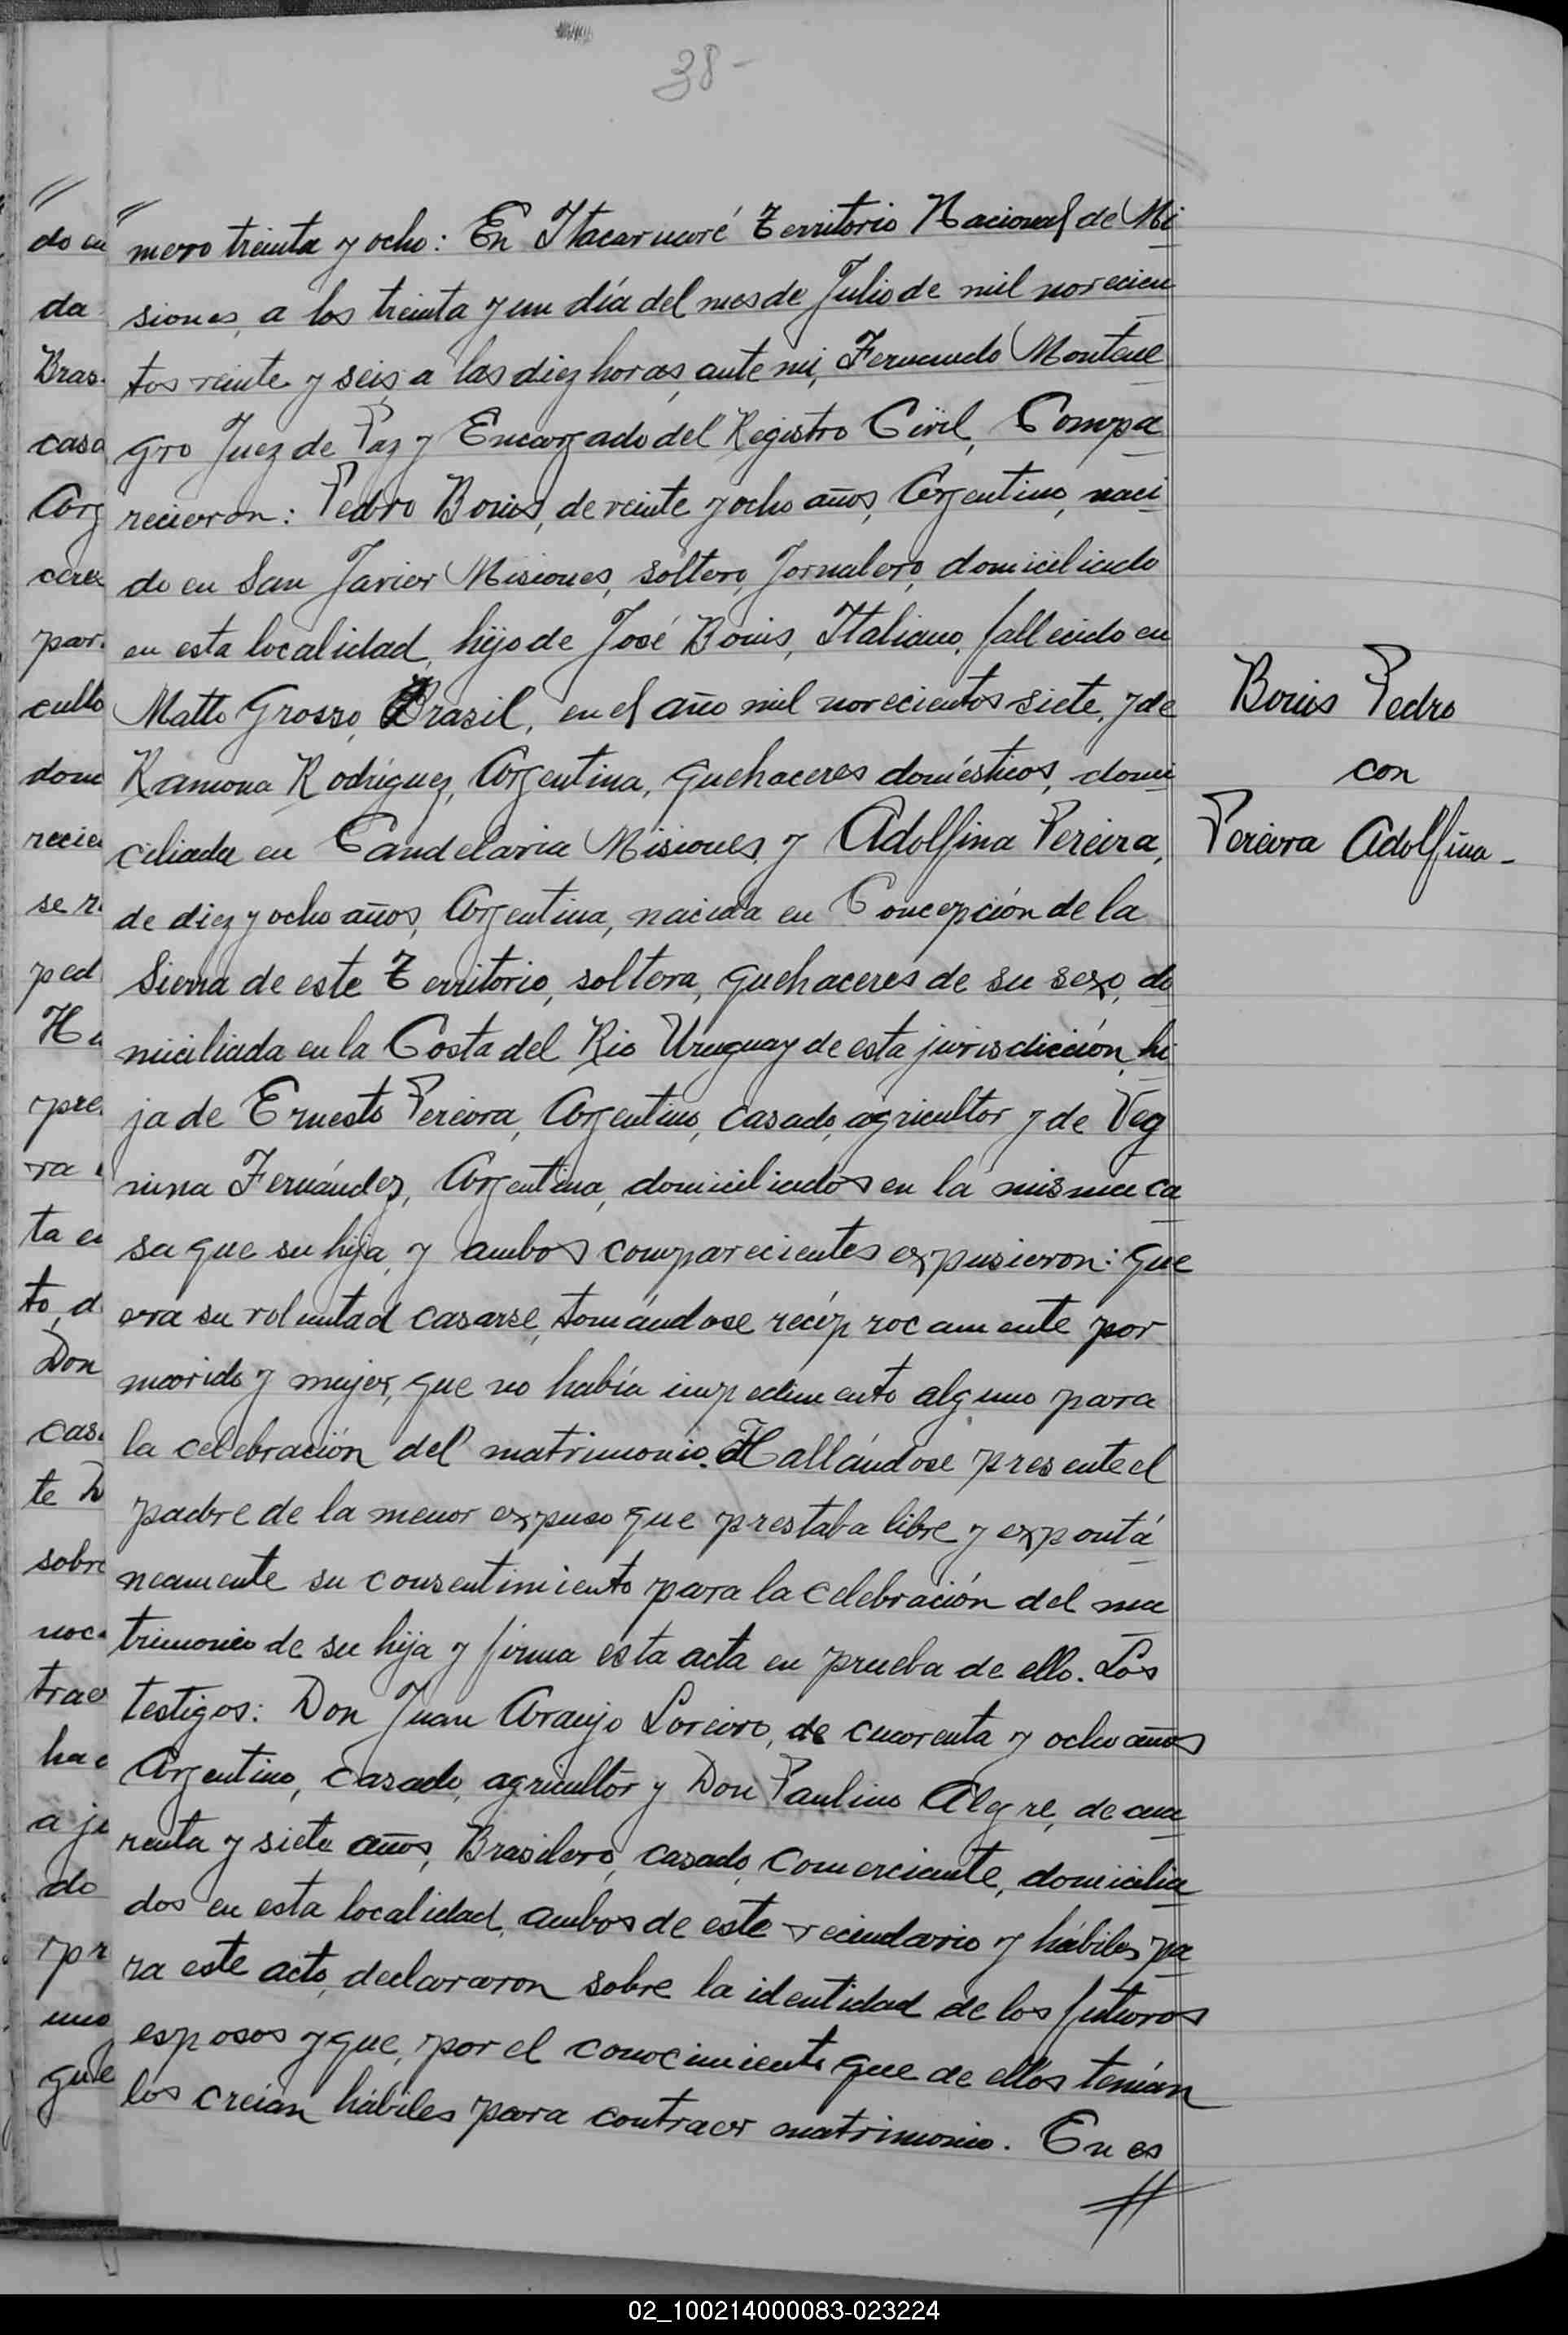 38-
"
mero treinta y ocho: En Itacaruaré Territorio Nacional de Mi
siones, a los treinta y un día del mes de Julio de mil novecien
tos veinte y seis, a las diez horas, ante mi, Fernando Montene
gro Juez de Paz y Encargado del Registro Civil, Compa
recieron: Pedro Bouis, de veinte y ocho años, Argentino, naci
do en San Javier Misiones, soltero, Jornalero, domiciliado
en esta localidad, hijo de José Bouis, Italiano, fallecido en
Matto Grosso, Brasil, en el año mil novecientos siete, y de
Ramona Rodríguez, Argentina, quehaceres domésticos, domi
ciliada en Candelaria Misiones, y Adolfina Pereira,
de diez y ocho años, Argentina, nacida en Concepción de la
Sierra de este Territorio, soltera, quehaceres de su sexo, do
miciliada en la Costa del Rio Uruguay de esta jurisdicción, hi
ja de Ernesto Pereira, Argentino, casado, agricultor y de Veg
nina Fernández, Argentina, domiciliados en la misma ca
sa que su hija, y ambos comparecientes expusieron: que
era su voluntad casarse, tomándose recíprocamente por
marido y mujer, que no había impedimento alguno para
la celebración del matrimonio. Hallándose presente el
padre de la menor expuso que prestaba libre y expontá
neamente su consentimiento para la celebración del ma
trimonio de su hija y firma esta acta en prueba de ello. Los
testigos: Don Juan Araujo Loreiro, de cuarenta y ocho años
Argentino, casado, agricultor y Don Paulino Alegre, de cua
renta y siete años, Brasilero, casado, Comerciante, domicilia
dos en esta localidad, ambos de este vecindario y hábiles pa
ra este acto, declararon sobre la identidad de los futuros
esposos y que, por el conocimiento que de ellos tenían
los creían hábiles para contraer matrimonio. En es
//
Bouis Pedro
con
Pereira Adolfina-
"
do en
da
Bras.
casa
Arg
cerca
par.
culto
dom
recie
se r
ped
Ha
pre
ra
ta e
to, d
Don
cas.
te D
sobre
noc
trae
hac
a ju
do
pr
uno
que
02_100214000083-023224